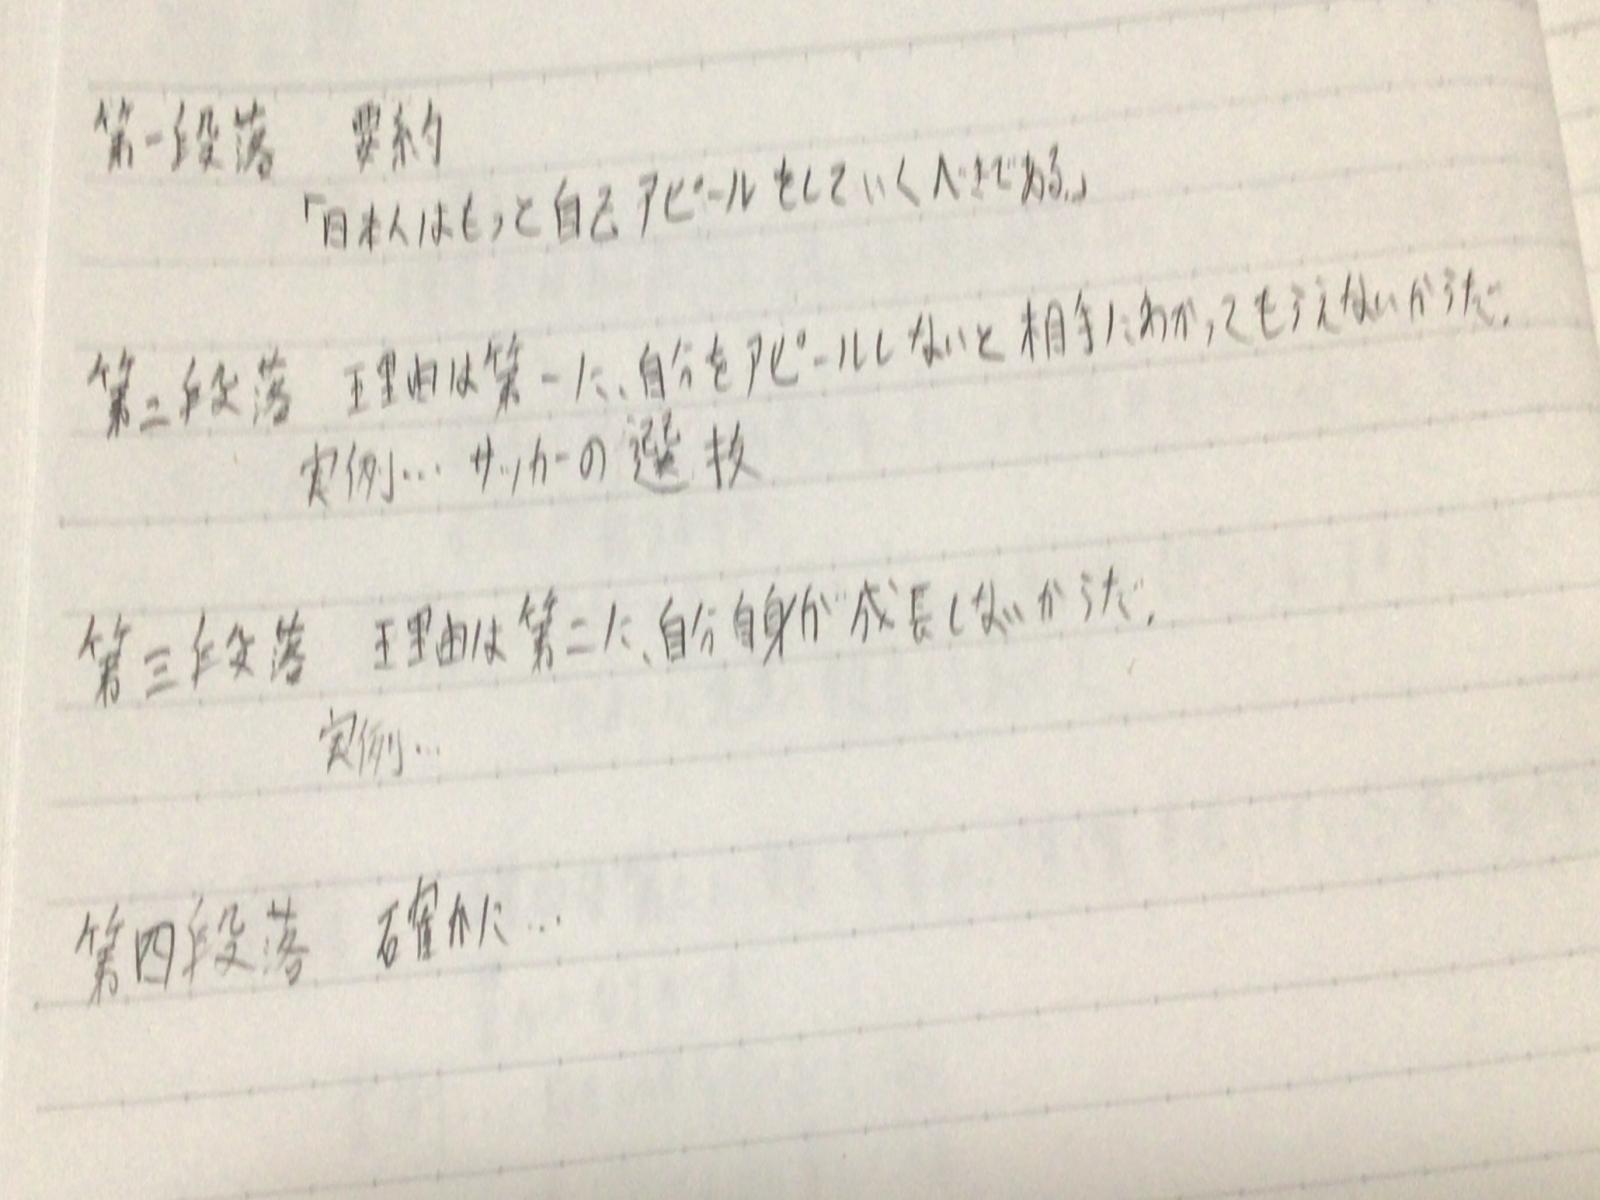 第一段落 要約
「日本人はもっと自己アピールをしていくべきである。」
第二段落 理由は第一に、自分をアピールしないと相手にわかってもらえないからだ。
実例… サッカーの選抜
第三段落 理由は第二に、自分自身が成長しないからだ。
実例…
第四段落 確かに…